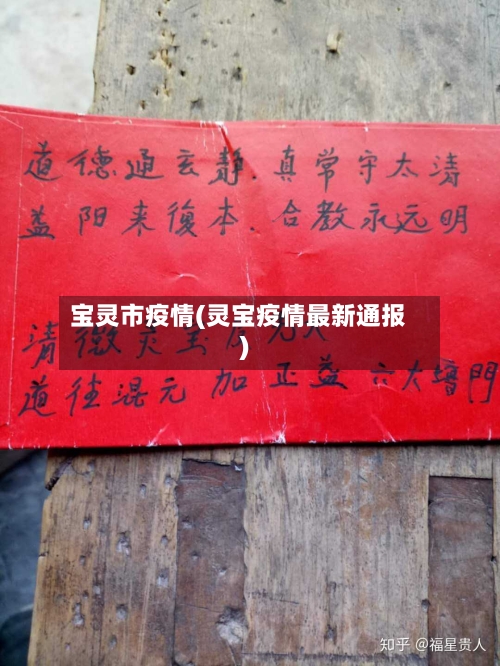 道德通玄静.真常守太清
益阳来復本.合教永远明
宝灵市疫情(灵宝疫情最新通报
)
清微灵宝
道往混元 加 正益 六大 門
知乎 @福星贵人